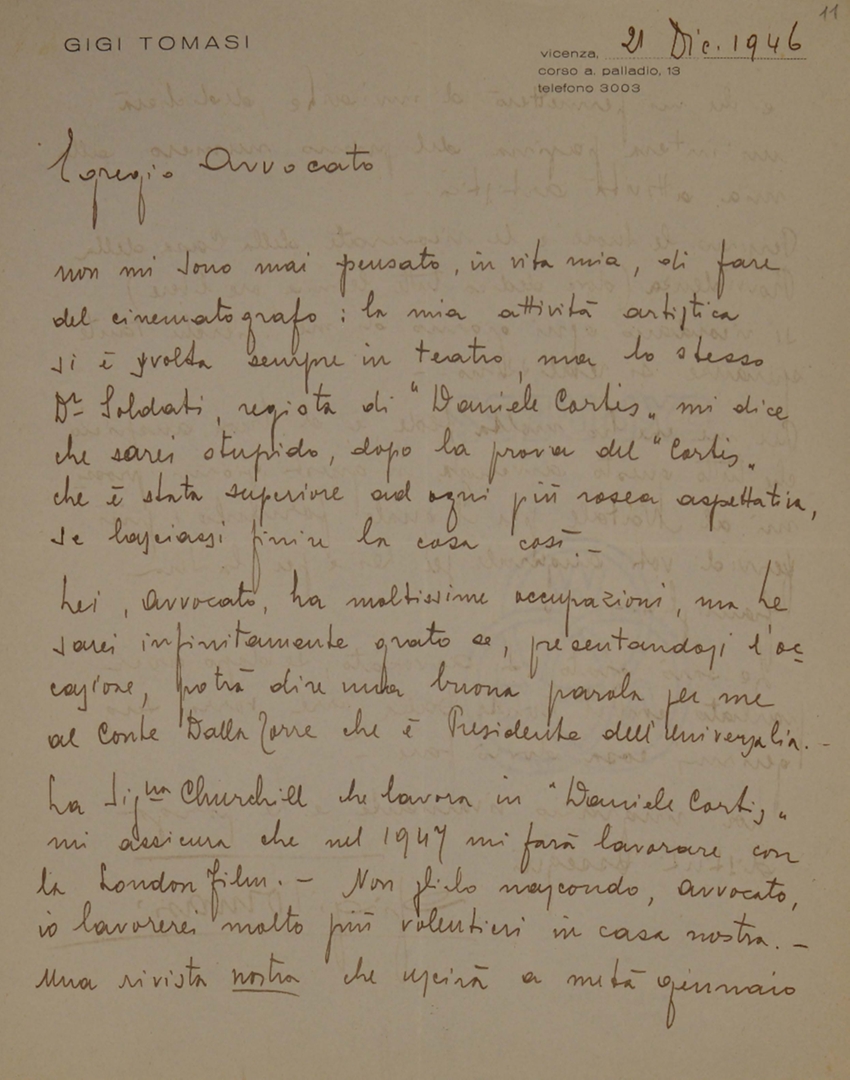 11
GIGI TOMASI
vicenza, 21 Dic. 1946
corso a. palladio, 13
telefono 3003
Egregio Avvocato
non mi sono mai pensato, in vita mia, di fare
del cinematografo : la mia attività artistica
si è svolta sempre in teatro, ma lo stesso
Dr Soldati, regista di "Daniele Cortis„ mi dice
che sarei stupido, dopo la prova del "Cortis„
che è stata superiore ad ogni più rosea aspettativa,
se lasciassi finire la cosa così. –
Lei, avvocato, ha moltissime occupazioni, ma Le
sarei infinitamente grato se, presentandosi l'oc=
casione, potrà dire una buona parola per me
al Conte Dalla Torre che è Presidente dell'Universalia. –
La Sigma Churchill che lavora in "Daniele Cortis„
mi assicura che nel 1947 mi farà lavorare con
la London Film. – Non glielo nascondo, avvocato,
io lavorerei molto più volentieri in casa nostra. –
Una rivista nostra che uscirà a metà gennaio